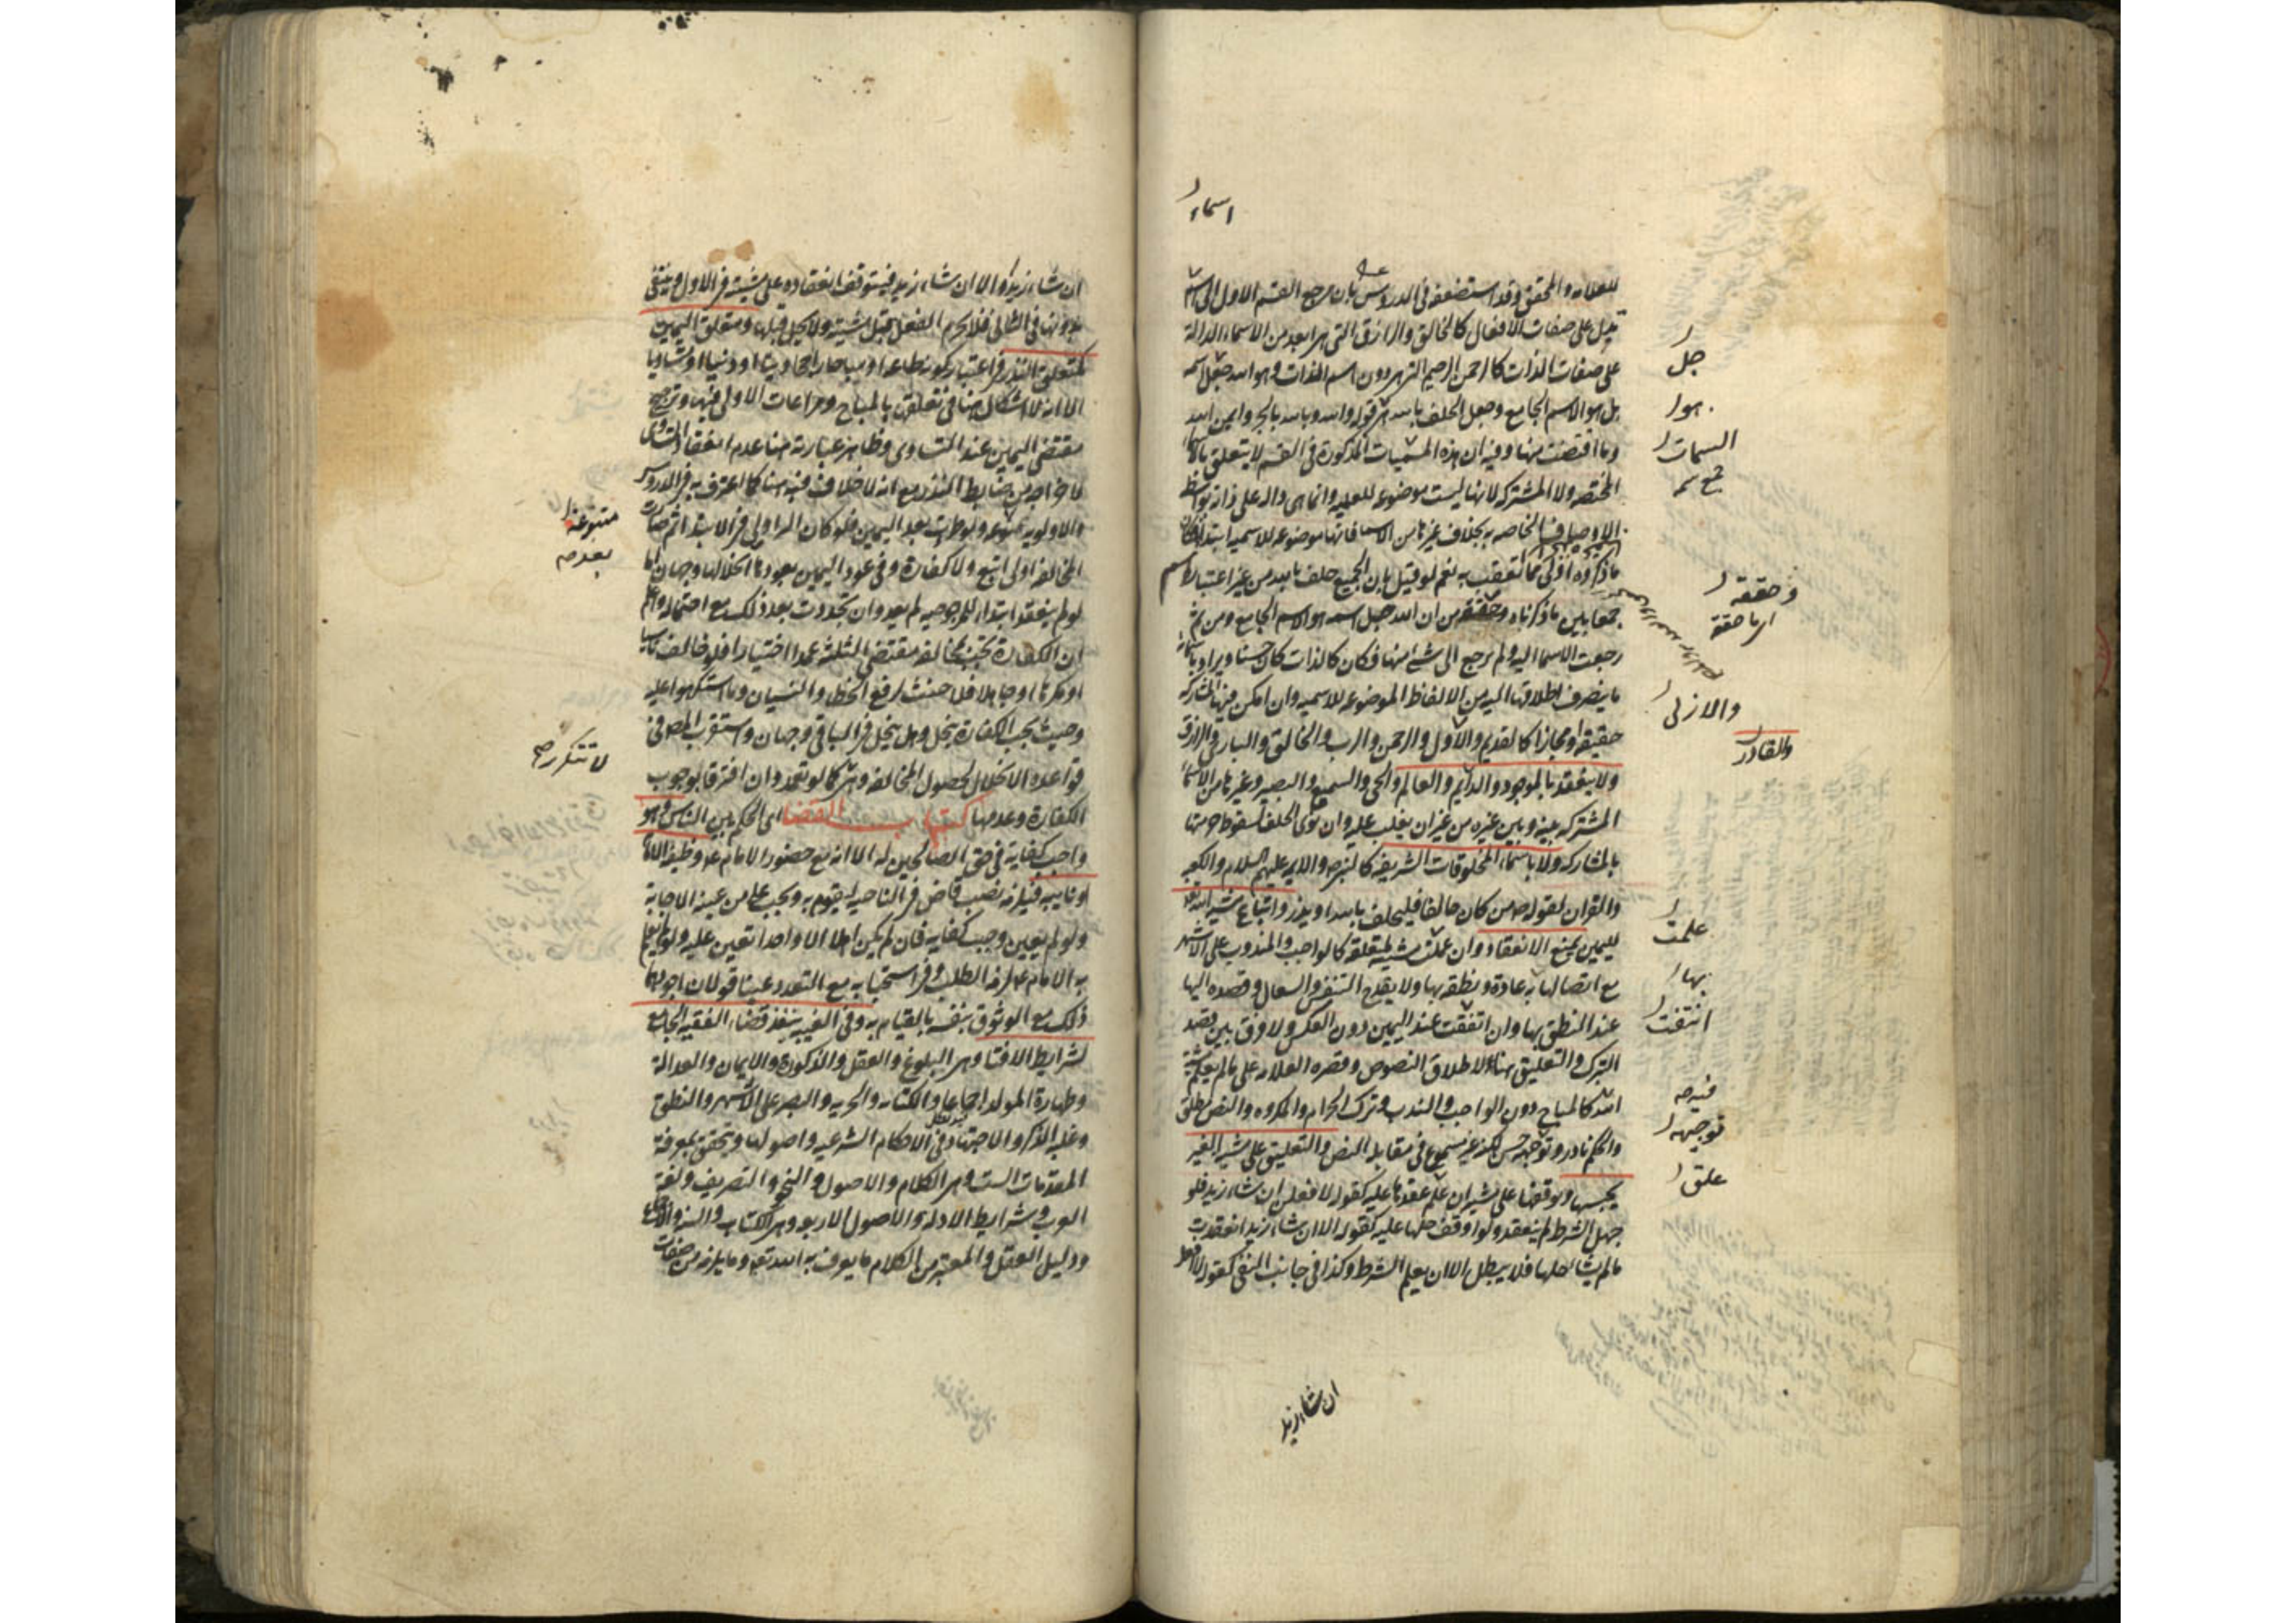 اسماء
للعلامه والمحقق وقد استضعفه في الدروس بان مرجع القسم الاول الى اسم
تدل على صفات الافعال كالخالق والرازق التي هى ابعد من الاسماء الدالة
على صفات الذات كالرحمن الرحيم التى هى دون اسم الذات وهو الله جل اسمه
بل هو الاسم الجامع وجعل الحلف بالله هو قوله والله وبالله بالجر وايمن الله
وما اقتضب منها وفيه ان هذه السمات المذكورة في القسم لا يتعلق بالاسماء
المختصه ولا المشتركه لانها ليست موضوعه للعلميه وانما هى داله على ذاته بواسطه
الاوصاف الخاصه به بخلاف غيرها من الاسماء فانها موضوعه للاسميه ابتداء فكان
ما ذكروه اولى مما تعقب به نعم لو قيل بان الجميع حلف بالله من غير اعتبار اسم
جمعا بين ما ذكرناه وحققه من ان الله جل اسمه هو الاسم الجامع ومن ثم
رجعت الاسماء اليه ولم يرجع الى شئ منها فكان كالذات كان حسنا ويراد باسمائه
ما ينصرف اطلاقها اليه من الالفاظ الموضوعه للاسميه وان امكن فيها المشاركه
حقيقة او مجازا كالقديم والاول والرحمن والرب والخالق والبارى والرازق
ولا ينعقد بالموجود والدايم والعالم والحى والسميع والبصير وغيرها من الاسماء
المشتركه بينه وبين غيره من غير ان يغلب عليه وان نوى الحلف لسقوط حرمتها
بالمشاركه ولا باسماء المخلوقات الشريفه كالنبى والايمه عليهم السلام والكعبه
والقران لقوله من كان حالفا فليحلف بالله او يذر واتباع مشية الله تع
لليمين يمنع الانعقاد وان علمت مشيته لمتعلقه كالواجب والمندوب على الاشهر
مع اتصالها به عادة ونطقه بها ولا يقدح التنفس والسعال وقصده اليها
عند النطق بها وان انتفت عند اليمين دون العكس ولا فرق بين قصد
التبرك والتعليق هنا لاطلاق النصوص وقصره العلامه على ما لم يعلم مشية
الله كالمباح دون الواجب والندب وترك الحرام والمكروه والنص مطلق
والحكم نادر وتوجيهه حسن لكنه غير مسموع في مقابله النص والتعليق على مشية الغير
يحبسها ويوقفها على مشيته ان علم عقدها عليه كقوله لافعلن ان شاء زيد فلو
جهل الشرط لم ينعقد ولو اوقف حلها عليه كقوله الا ان شاء زيد انعقدت
ما لم يشا حلها فلا يبطل الا ان يعلم الشرط وكذا في جانب النفى كقوله لا افعل
جل
هو
السمات
وحققه
اى ما حققه
والازلى
والقادر
علمت
بها
انتفت
فيه صح
توجيهه
علق
ان شاء زيد
ان شاء زيد او الا ان شاء زيد فيتوقف انعقاده على مشيته فى الاول وينتفى
بدونها في الثانى فلا يحرم الفعل قبل مشيته ولا يحل قبلها ومتعلق اليمين
كمتعلق النذر فى اعتبار كونه طاعه او مباحا راجحا دينا او دنيا او متساويا
الا انه لا اشكال هنا في تعلقها بالمباح ومراعات الاولى فيها وترجيح
مقتضى اليمين عند التساوى وظاهر عبارته هنا عدم انعقاد المتساوى
لاخراجه من ضابط النذر مع انه لا خلاف فيه هنا كما اعترف به فى الدروس
والاولويه متبوعه ولو طرات بعد اليمين فلو كان البر اولى فى الابتداء ثم صارت
المخالفه اولى اتبع ولا كفارة وفى عود اليمين بعودها بعد انحلالها وجهان اما
لو لم ينعقد ابتداء للمرجوحيه لم يعد وان تجددت بعد ذلك مع احتماله واعلم
ان الكفارة تجب بمخالفه مقتضى الثلثه عمدا اختيارا فلو خالف ناسيا
او مكرها او جاهلا فلا حنث لرفع الخطا والنسيان وما استكرهوا عليه
وحيث تجب الكفارة ينحل وهل ينحل فى الباقى وجهان واستقرب المص فى
قواعده الانحلال لحصول المخالفه وهى لا تتكرر كما لو تعمد وان افترقا بوجوب
الكفارة وعدمها كتاب القضا اى الحكم بين الناس وهو
واجب كفاية في حق الصالحين له الا انه مع حضور الامام ع وظيفة الامام
او نايبه فيلزمه نصب قاض فى الناحيه ليقوم به ويجب على من عينه الاجابة
ولو لم يعين وجب كفايه فان لم يكن اهلا الا واحدا تعين عليه ولو لم يعلم
به الامام ع لزمه الطلب وفى استحبابه مع التعدد عينا قولان اجودهما
ذلك مع الوثوق بنفسه بالقيام به وفى الغيبه ينفذ قضاء الفقيه الجامع
لشرايط الافتا وهى البلوغ والعقل والذكورة والايمان والعدالة
وطهارة المولد اجماعا والكتابه والحريه والبصر على الاشهر والنطق
وغلبة الذكر والاجتهاد فى الاحكام الشرعيه واصولها ويتحقق بمعرفه
المقدمات الست وهى الكلام والاصول والنحو والتصريف ولغه
العرب وشرايط الادله والاصول الاربعه وهى الكتاب والسنه والاجماع
ودليل العقل والمعتبر من الكلام ما يعرف به الله تع وما يلزمه من صفات
متبوعه
بعد صح
لا تتكرر صح